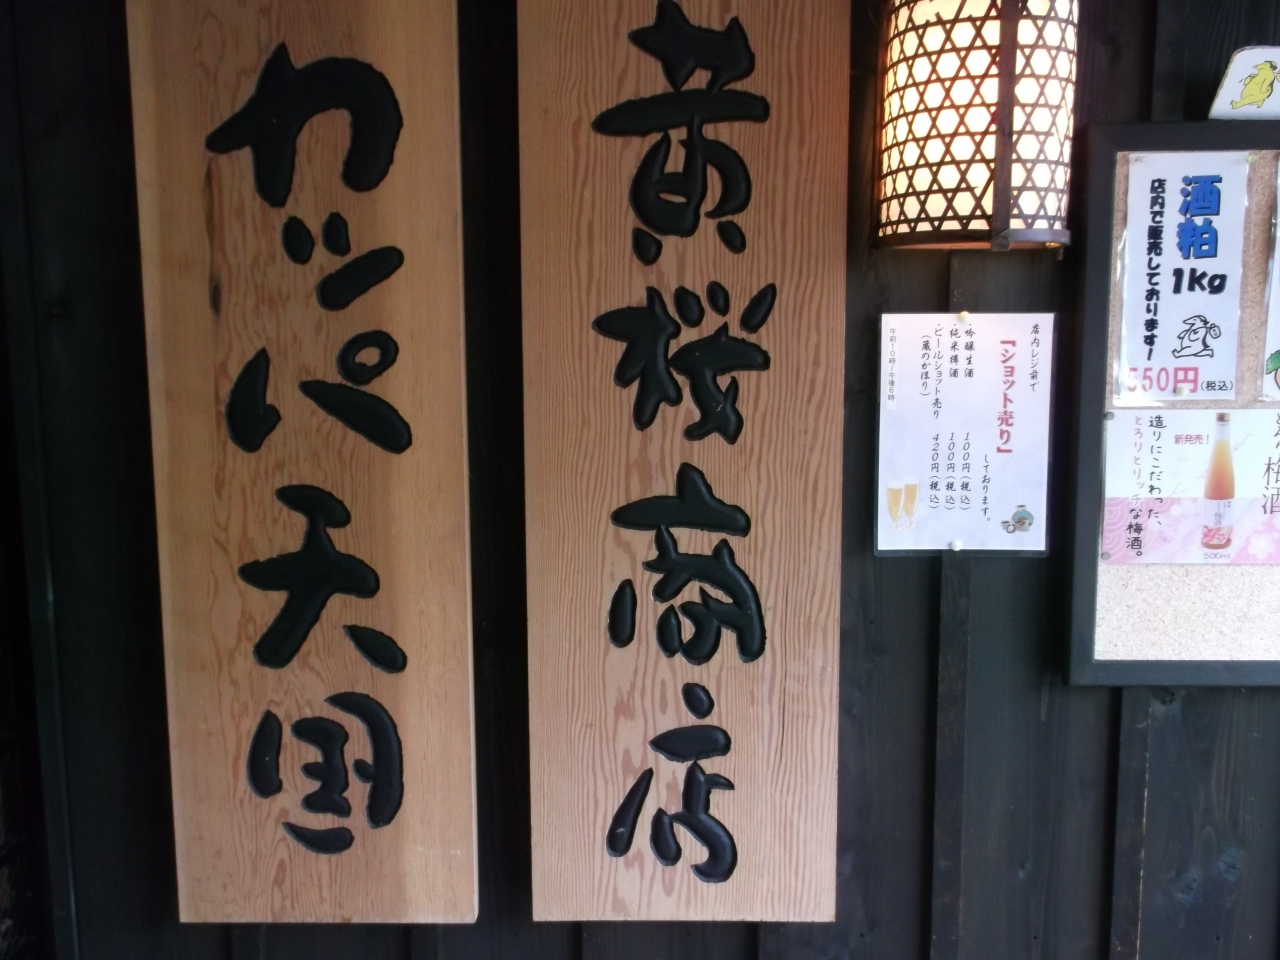 黄桜商店
カッパ天国
店内レジ前で
『ショット売り』
しております。
・吟醸生酒 100円(税込)
・純米樽酒 100円(税込)
・ビールショット売り 420円(税込)
(蔵のかほり)
午前10時~午後6時
酒粕
1kg
店内で販売しております!
550円(税込)
新発売!
造りにこだわった、
とろりとリッチな梅酒。
500ml
梅酒